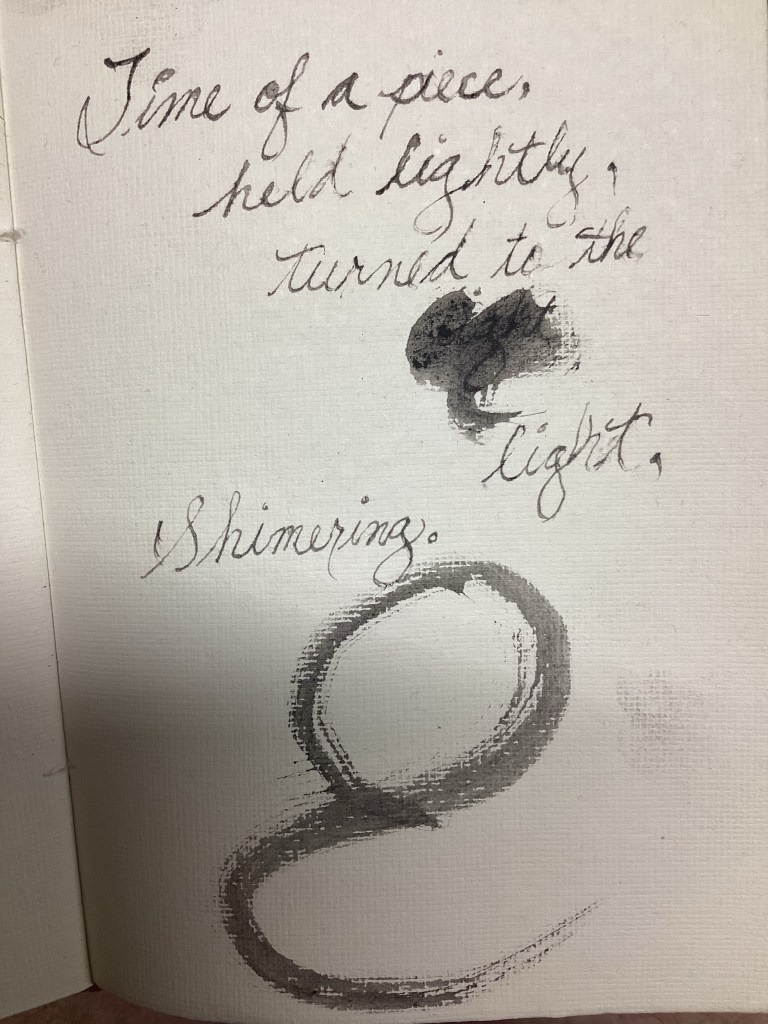 Time of a piece,
held lightly,
turned to the
light,
Shimering.